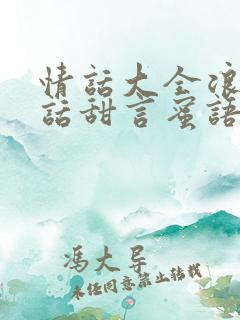 情話大全浪
話甜言蜜語
馮大导
未经同意禁止转载